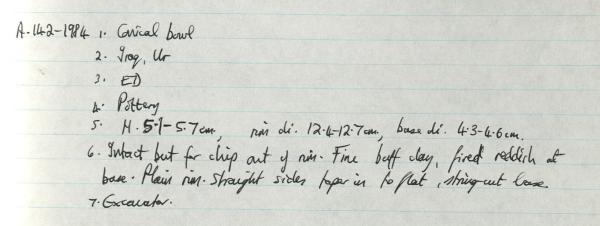 A.142-1984 1. Conical bowl
2. Iraq, Ur
3. ED
4. Pottery
5. H. 5.1-5.7cm, rim di. 12.4-12.7cm, base di. 4.3-4.6cm.
6. Intact but for chip out of rim. Fine buff clay, fired reddish at
base. Plain rim. Straight sides taper in to flat, string-cut base
7. Excavator.